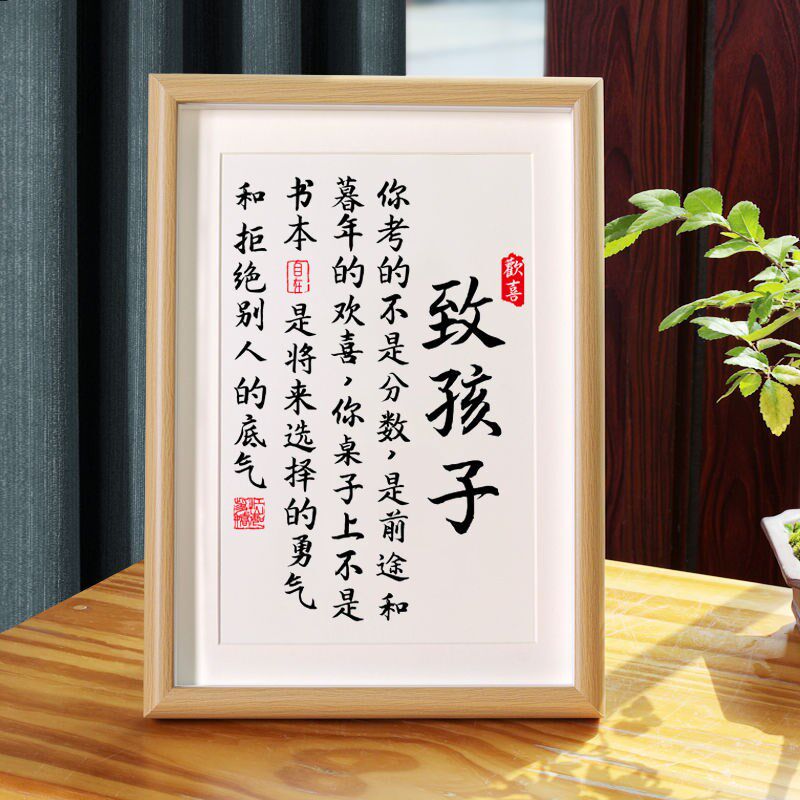 歡喜
致孩子
你考的不是分数，是前途和
暮年的欢喜，你桌子上不是
书本
自在
是将来选择的勇气
和拒绝别人的底气